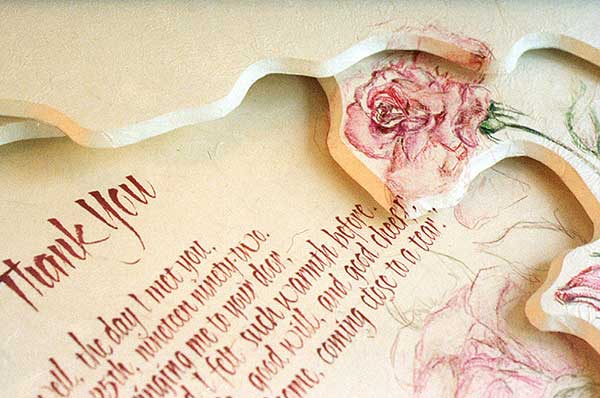 Thank You
ell, the day I met you,
nineteen ninety-two.
inging me to your door,
I felt such warmth before.
good will, and good cheer,
ome, coming close to a tear.